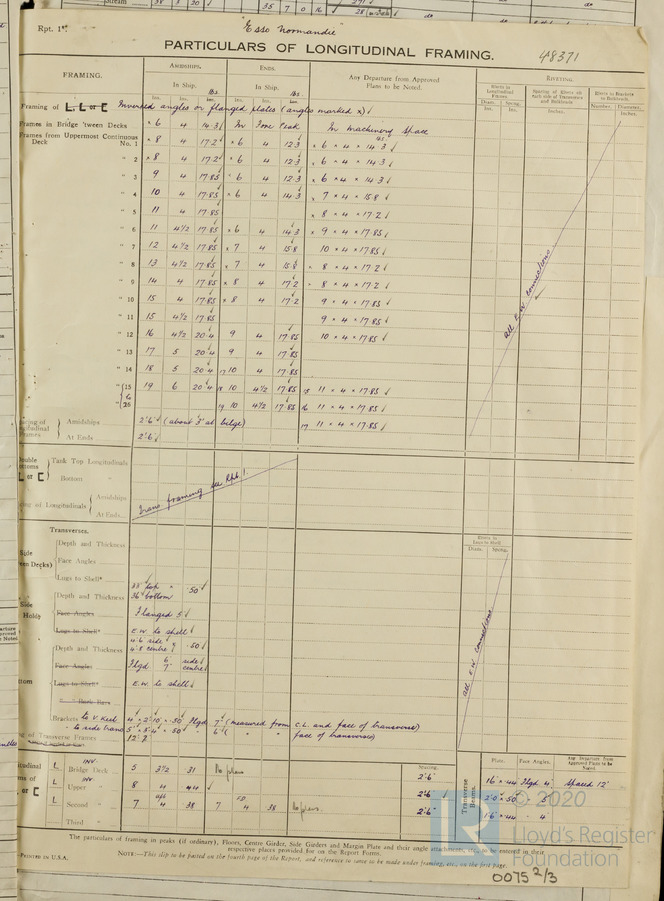 Rpt. 1*.
"Esso Normandie"
PARTICULARS OF LONGITUDINAL FRAMING.
48371
FRAMING.
AMIDSHIPS.
ENDS.
Any Departure from Approved Plans to be Noted.
RIVETING.
In Ship.
In Ship.
Rivets in Longitudinal Frames.
Spacing of Rivets on each side of Transverses and Bulkheads
Rivets in Brackets to Bulkheads.
Ins. Ins. lbs Ins. Ins. lbs
Diam. Spcng. Inches. Number. Diameter
Framing of L, L or [ Inverted angles or flanged plates (angles marked x) ✓
Frames in Bridge 'tween Decks x 6 4 14.3 ✓ In Fore Peak In machinery space
Frames from Uppermost Continuous Deck No. 1 x 8 4 17.2 x 6 4 12.3 x 6 x 4 x 14.3 ✓
" 2 x 8 4 17.2 x 6 4 12.3 x 6 x 4 x 14.3 ✓
" 3 9 4 17.85 x 6 4 12.3 x 6 x 4 x 14.3 ✓
" 4 10 4 17.85 x 6 4 14.3 x 7 x 4 x 15.8 ✓
" 5 11 4 17.85 x 8 x 4 x 17.2 ✓
" 6 11 4½ 17.85 x 6 4 14.3 x 9 x 4 x 17.85 ✓
" 7 12 4½ 17.85 x 7 4 15.8 10 x 4 x 17.85 ✓
" 8 13 4½ 17.85 x 7 4 15.8 x 8 x 4 x 17.2 ✓
" 9 14 4 17.85 x 8 4 17.2 x 8 x 4 x 17.2 ✓
" 10 15 4 17.85 x 8 4 17.2 9 x 4 x 17.85 ✓
" 11 15 4½ 17.85 9 x 4 x 17.85 ✓
" 12 16 4½ 20.4 9 4 17.85 10 x 4 x 17.85 ✓
" 13 17 5 20.4 9 4 17.85
" 14 18 5 20.4 17 10 4 17.85
" 15 19 6 20.4 18 10 4½ 17.85 15 11 x 4 x 17.85 ✓
to
" 26 19 10 4½ 17.85 16 11 x 4 x 17.85 ✓
17 11 x 4 x 17.85 ✓
all E.W. connections
Amidships 2'6" ✓ (about 3' at bilge)
At Ends 2'6" ✓
Tank Top Longitudinals
Bottom "
Trans framing see Rpt. 1.
Amidships
At Ends
TRANSVERSES.
Rivets in Lugs to Shell
Diam. Spcng.
Depth and Thickness
Face Angles
Lugs to Shell*
Depth and Thickness 38" top 36" bottom .50 ✓
Face Angles Flanged 5" ✓
Lugs to Shell* E.W. to shell ✓
Depth and Thickness 4'6 side 4'8 centre .50 ✓
Face Angles Flgd 6" side 7" centre ✓
Lugs to Shell* E.W. to shell ✓
all E.W. connections
Brackets to V Keel 7" (measured from C.L. and face of transverse)
" to side trans 6" ( " " face of transverse)
Transverse Frames 12'
Spacing. Plate. Face Angles. Any Departure from Approved Plans to be Noted.
L INV Bridge Deck 5 3½ 31 2'6" 16 x .44 Flgd 4" Spaced 12'
L INV Upper " 8 4 44 ✓ 2'6" 2'0 x 50 " 5"
L Second " 7 4 38 7 4 38 2'6" 1'6 x 44 " 4"
Third "
Transverse Beams.
The particulars of framing in peaks (if ordinary), Floors, Centre Girder, Side Girders and Margin Plate and their angle attachments, etc., to be entered in their
respective places provided for on the Report Forms.
—PRINTED IN U.S.A.
NOTE:—This slip to be pasted on the fourth page of the Report, and reference to same to be made under framing, etc., on the first page.
© 2020
LR
Lloyd's Register
Foundation
0075 2/3